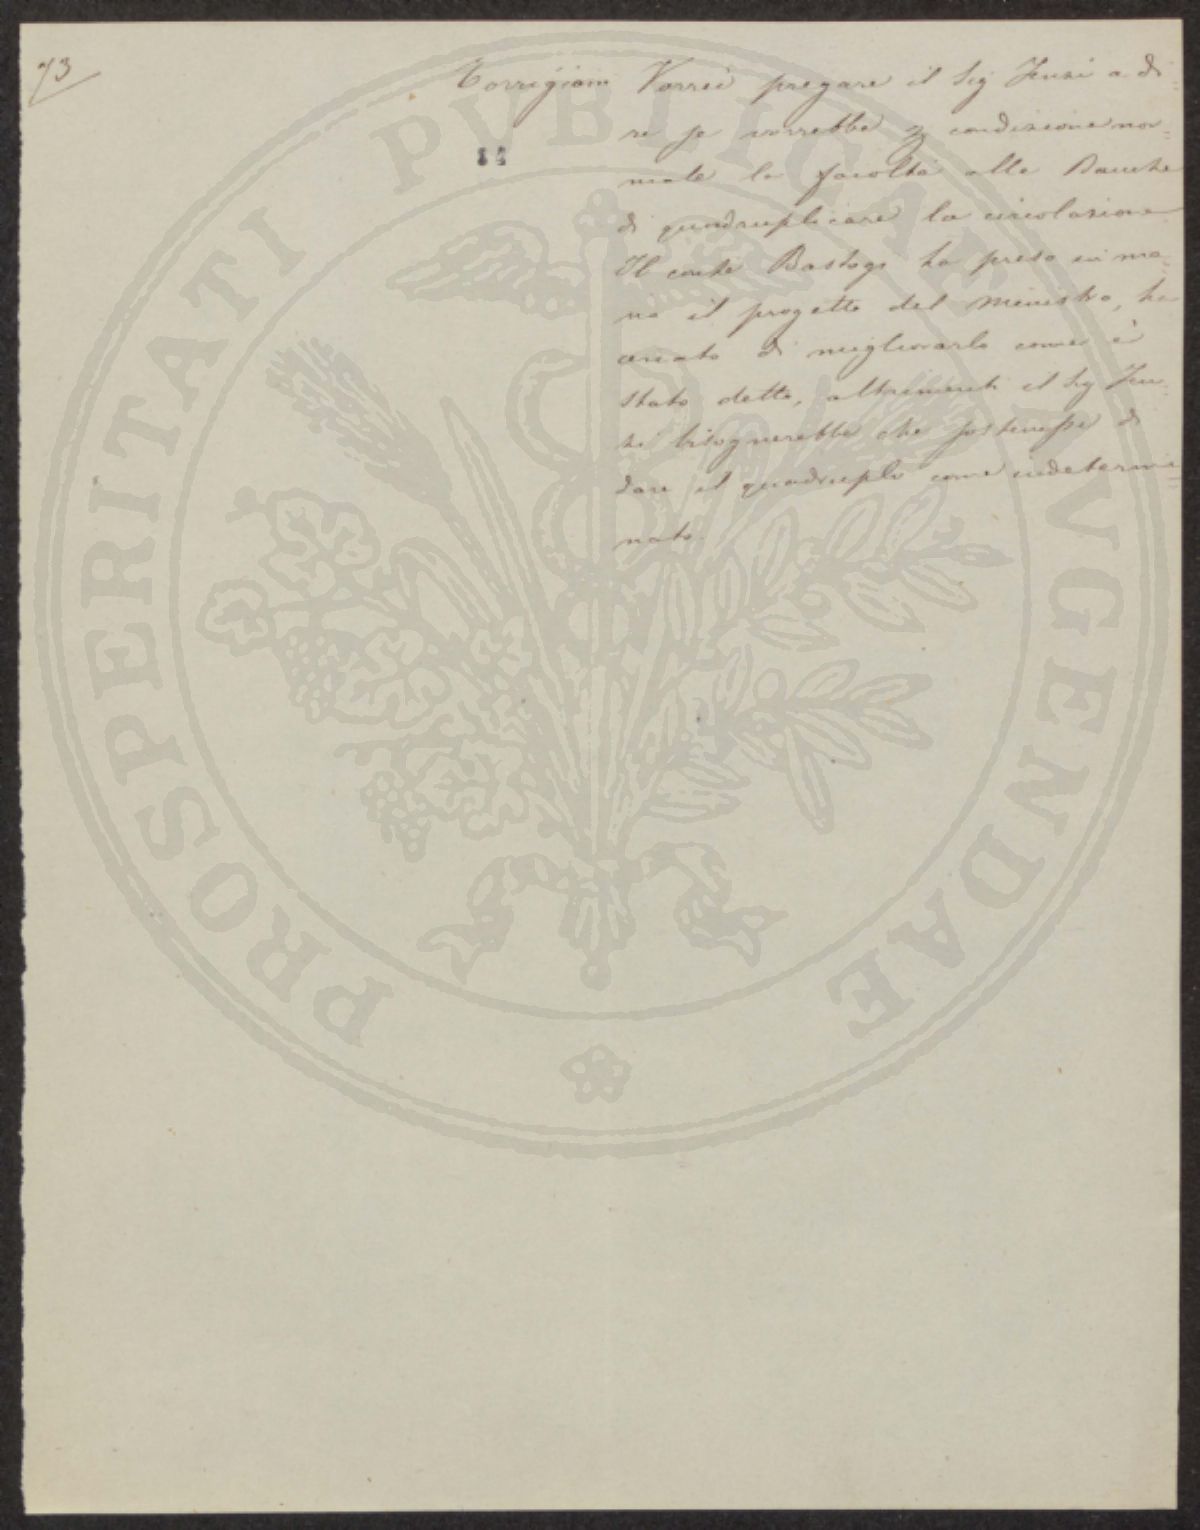 73
Torrigiani Vorrei pregare il Sig Tenzi a di=
re se vorrebbe p condizione nor=
male la facoltà alle Banche
di quadruplicare la circolazione
Il conte Bastogi ha preso in ma=
no il progetto del Ministro, ha
cercato di migliorarlo come è
stato detto, altrimenti il Sig Ten=
zi bisognerebbe che sostenesse di
dare il quadruplo come indetermi=
nato.
14
PROSPERITATI PVBLICAE AVGENDAE